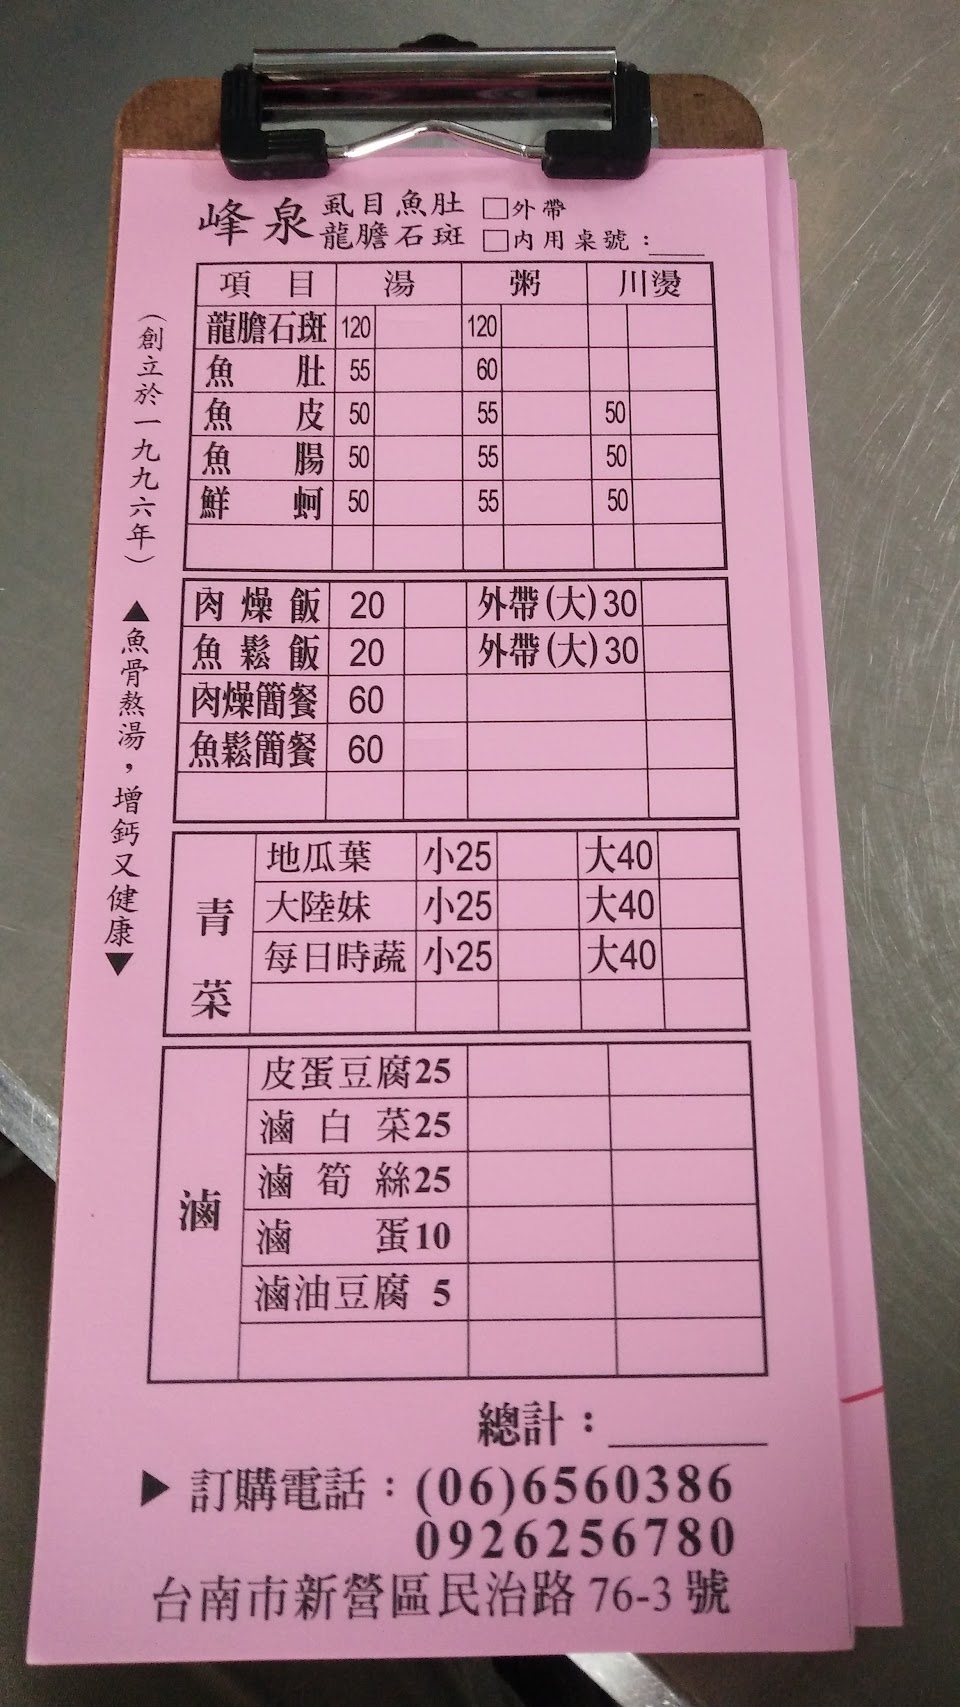 峰泉 虱目魚肚 龍膽石斑
□外帶
□內用桌號：
(創立於一九九六年)
▲魚骨熬湯，增鈣又健康▼
項目 湯 粥 川燙
龍膽石斑 120 120
魚肚 55 60
魚皮 50 55 50
魚腸 50 55 50
鮮蚵 50 55 50
肉燥飯 20 外帶(大)30
魚鬆飯 20 外帶(大)30
肉燥簡餐 60
魚鬆簡餐 60
青菜
地瓜葉 小25 大40
大陸妹 小25 大40
每日時蔬 小25 大40
滷
皮蛋豆腐25
滷白菜25
滷筍絲25
滷蛋10
滷油豆腐 5
總計：
▶訂購電話：(06)6560386
0926256780
台南市新營區民治路 76-3 號